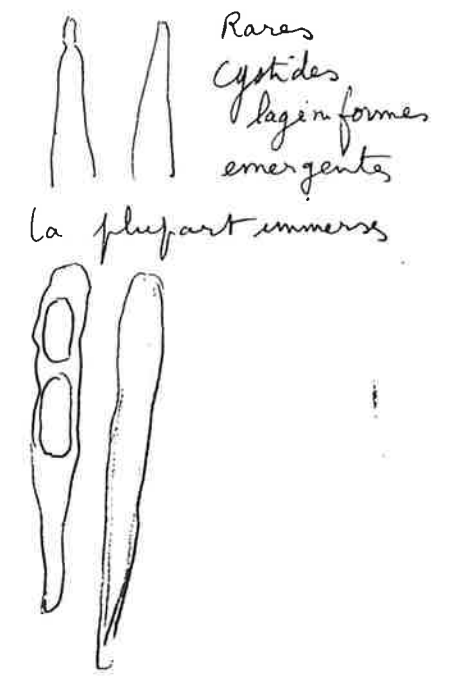 Rares
Cystides
lageniformes
emergentes
la plupart immerses